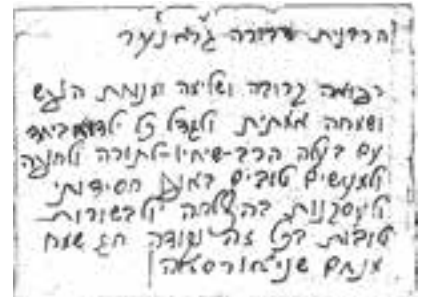 הרבנית דבורה גראנער
רפואה קרובה ושלימה ומנוחת הנפש
ושמחה אמתית ולגדל כל ביחד
עם בעלה הרב שיחיו לתורה ולחופה
ולמעשים טובים באופן חסידותי
ולעסקנות בהצלחה ולבשורות
טובות בכל זה ותודה חג שמח
מנחם שניאורסאהן